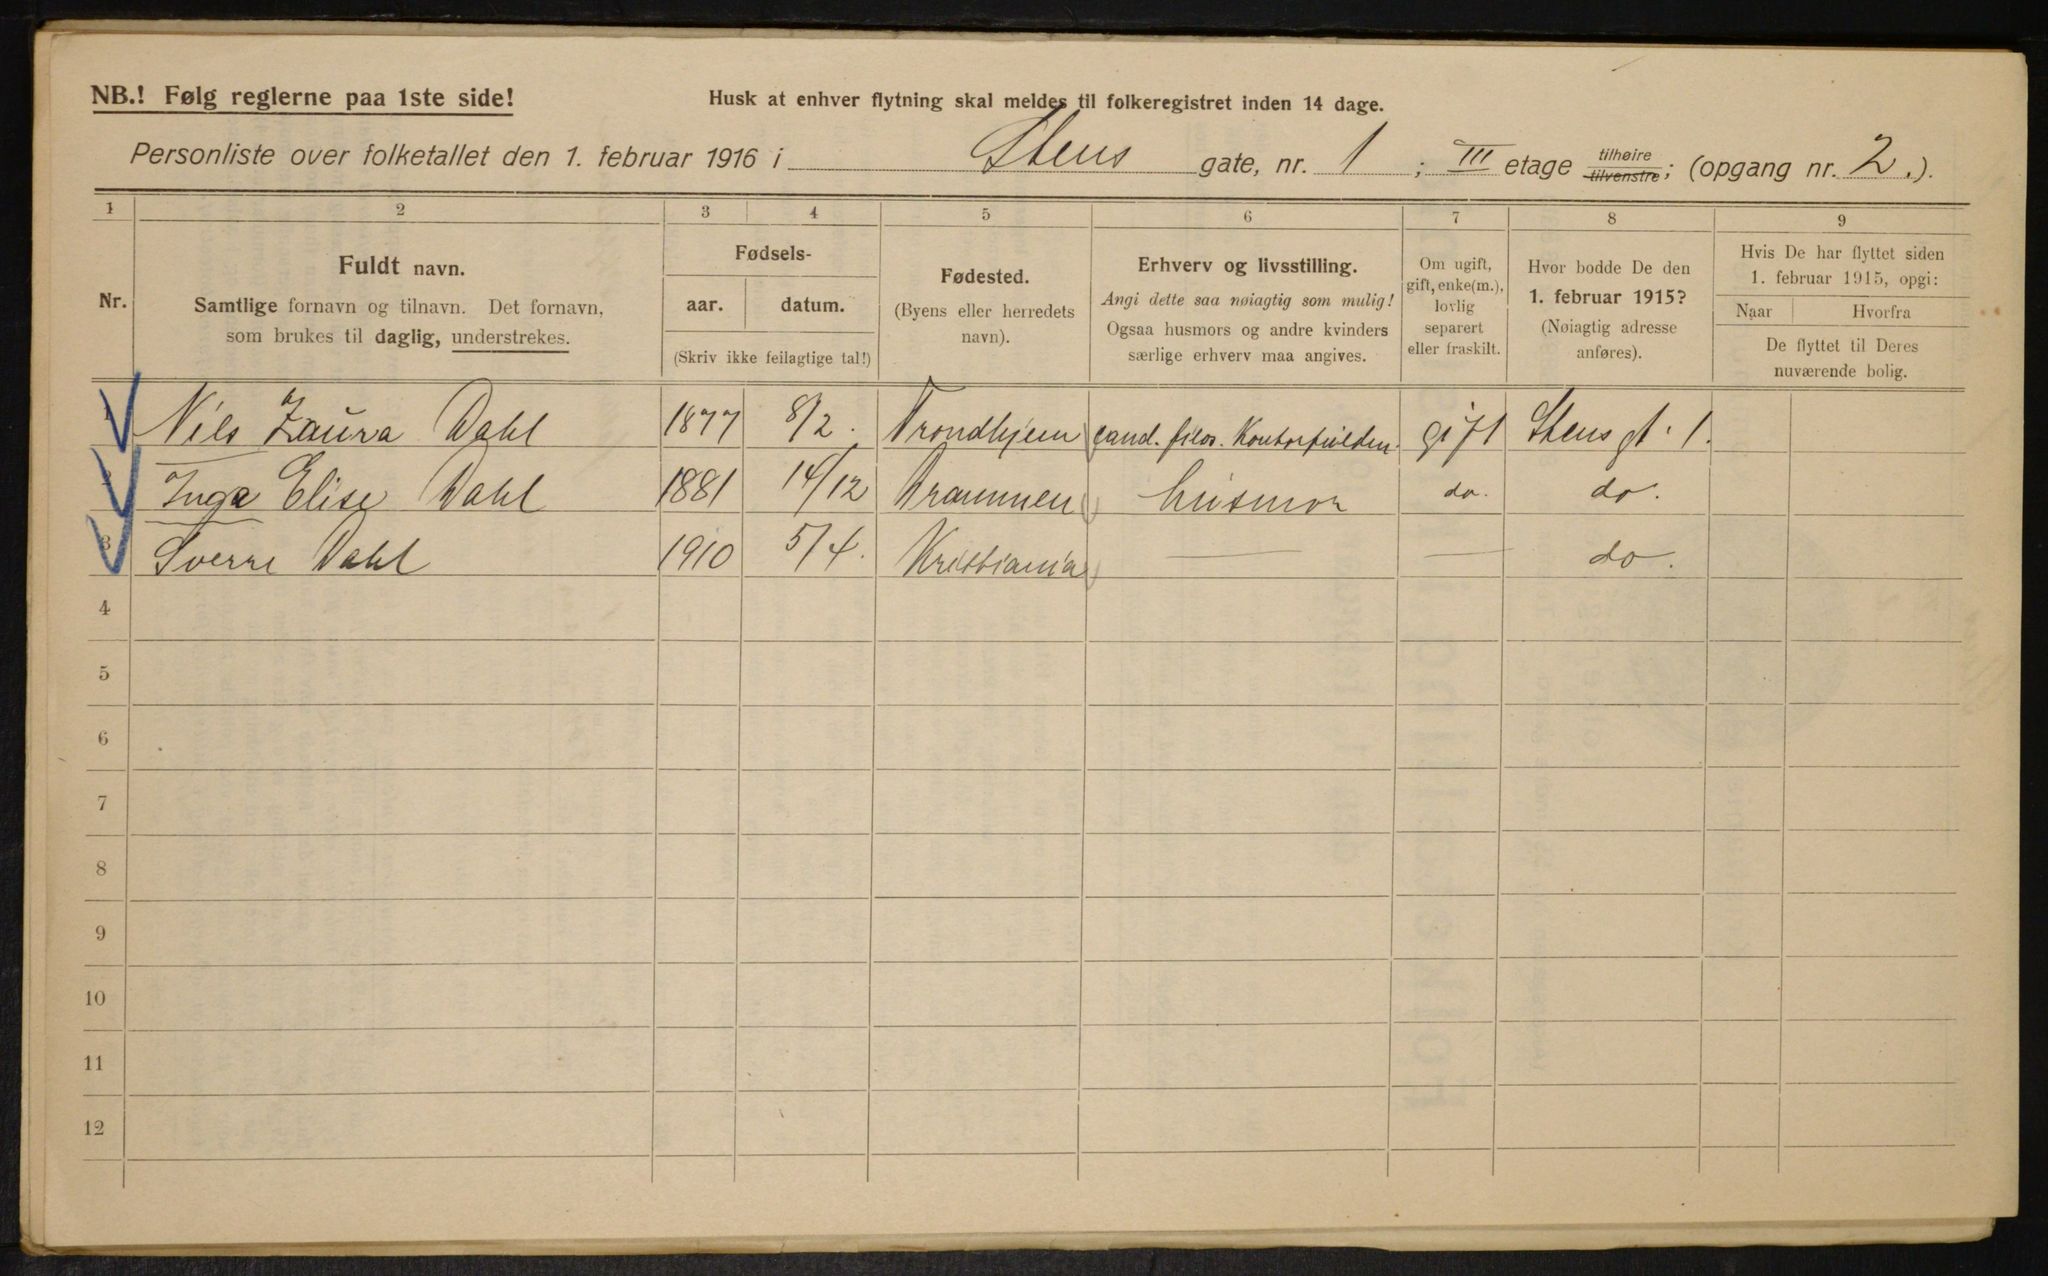 NB.! Følg reglerne paa 1ste side!
Husk at enhver flytning skal meldes til folkeregistret inden 14 dage.
Personliste over folketallet den 1. februar 1916 i Stens gate, nr. 1 ; III etage tilhøire tilvenstre; (opgang nr. 2.).
1 2 3 4 5 6 7 8 9
Nr.
Fuldt navn.
Samtlige fornavn og tilnavn. Det fornavn,
som brukes til daglig, understrekes.
Fødsels-
aar. datum.
(Skriv ikke feilagtige tal!)
Fødested.
(Byens eller herredets
navn).
Erhverv og livsstilling.
Angi dette saa nøiagtig som mulig!
Ogsaa husmors og andre kvinders
særlige erhverv maa angives.
Om ugift,
gift, enke(m.),
lovlig
separert
eller fraskilt.
Hvor bodde De den
1. februar 1915?
(Nøiagtig adresse
anføres).
Hvis De har flyttet siden
1. februar 1915, opgi:
Naar Hvorfra
De flyttet til Deres
nuværende bolig.
1 Nils Zaura Dahl 1877 8/2. Trondhjem cand. filos. gift Stensgt. 1.
2 Inga Elise Dahl 1881 14/12 Drammen husmor do. do.
3 Sverre Dahl 1910 5/4. Kristiania — — do.
4
5
6
7
8
9
10
11
12